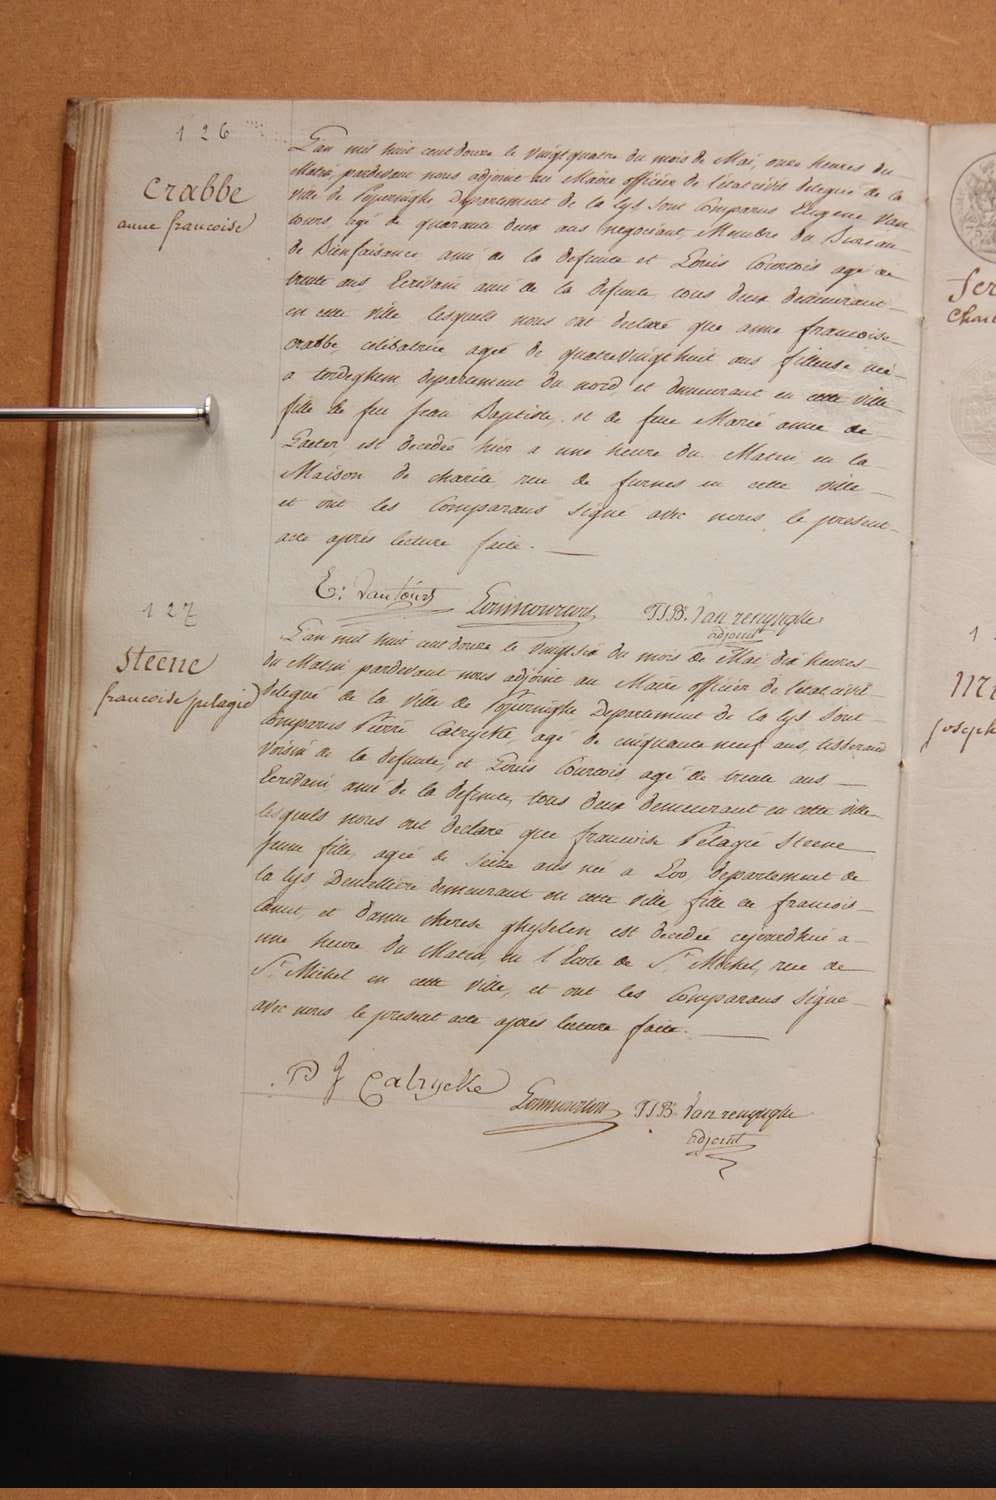 126
Crabbe
anne francoise
L'an mil huit cent douze le vingtquatre du mois de Mai, onze heures du
Matin, pardevant nous adjoint au Maire officier de l'état civil delegué de la
ville de Poperinghe Departement de la lys sont Comparus Eugene Van
tours agé de quarante deux ans negociant Membre du Bureau
de Bienfaisance ami de la defunte et Louis Courtois agé de
trente ans, Ecrivain ami de la defunte, tous deux demeurant
en cette ville lesquels nous ont declaré que anne francoise
Crabbe, celibatrice ageé de quatrevingthuit ans fileuse neé
a tordeghem departement du nord, et demeurant en cette ville
fille de feu jean Baptiste, et de feue Marie anne de
Gaeter, est decedée hier a une heure du Matin en la
Maison de charité rue de furnes en cette ville
et ont les Comparans signé avec nous le present
acte aprés lecture faite.
E: Vantours Louiscourtois P.J.B. Van renynghe
adjoint
127
Steene
francoise pelagie
L'an mil huit cent douze le vingtsix du mois de Mai dix heures
du Matin pardevant nous adjoint au Maire officier de l'état civil
delegué de la ville de Poperinghe Departement de la lys sont
Comparus Pierre Catrycke, agé de cinquante neuf ans, tisserand
Voisin de la defunte, et Louis Courtois, agé de trente ans
Ecrivain, ami de la defunte, tous deux demeurant en cette ville
lesquels nous ont declaré que francoise Pelagie Steene
jeune fille, ageé de seize ans neé a Loo, departement de
la lys Dentelliere demeurant en cette ville, fille de francois
Canut, et d'anne therese ghyselen est decedée cejourdhui a
une heure du Matin, en l'Ecole de St. Michel, rue de
St. Michel en cette ville, et ont les Comparans signé
avec nous le present acte aprés lecture faite.
P J Catrycke Louiscourtois P.J.B. Van renynghe
adjoint